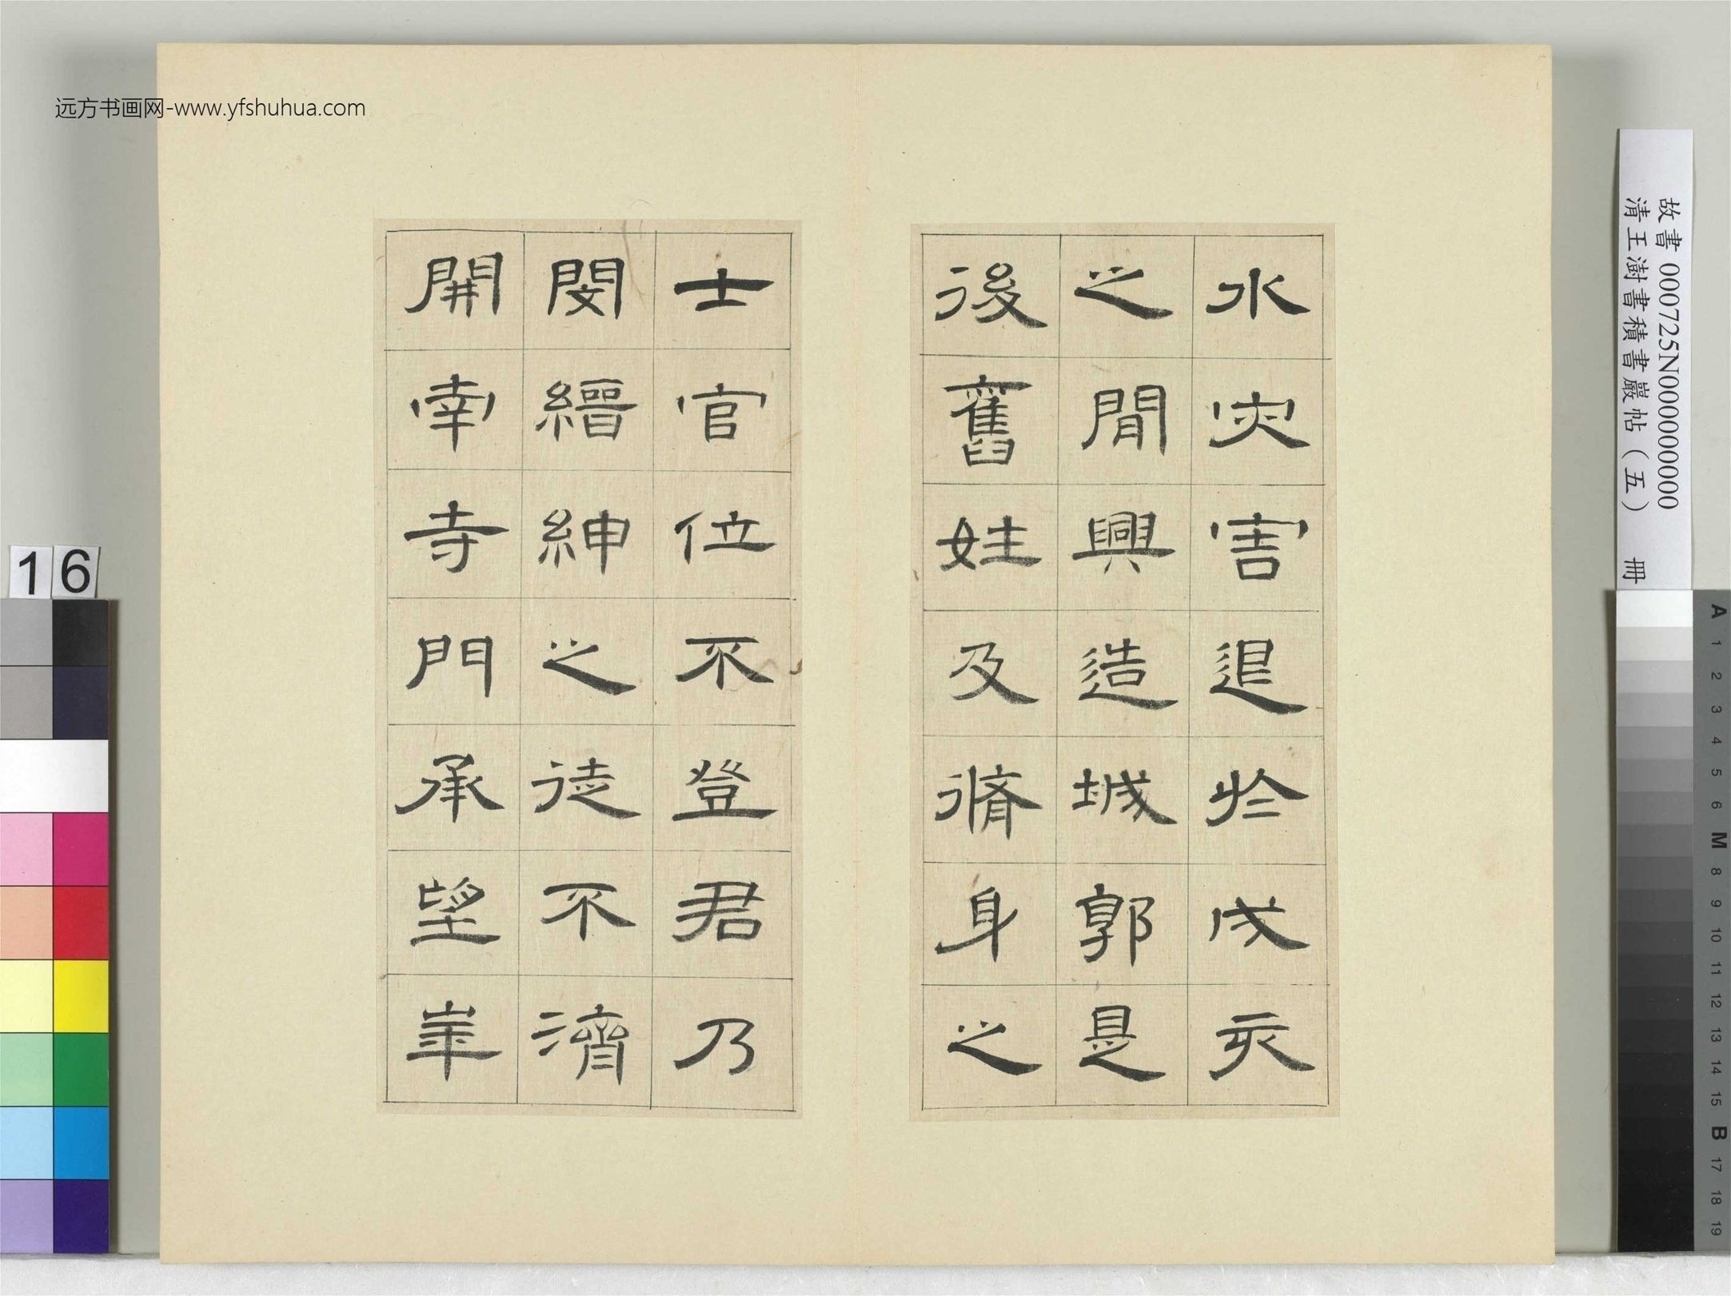 远方书画网-www.yfshuhua.com
水灾害退於戌亥
之間興造城郭是
後舊姓及脩身之
士官位不登君乃
閔縉紳之徒不濟
開南寺門承望華
故書 000725N000000000
清王澍書積書巖帖（五） 冊
16
A 1 2 3 4 5 6 M 8 9 10 11 12 13 14 15 B 17 18 19